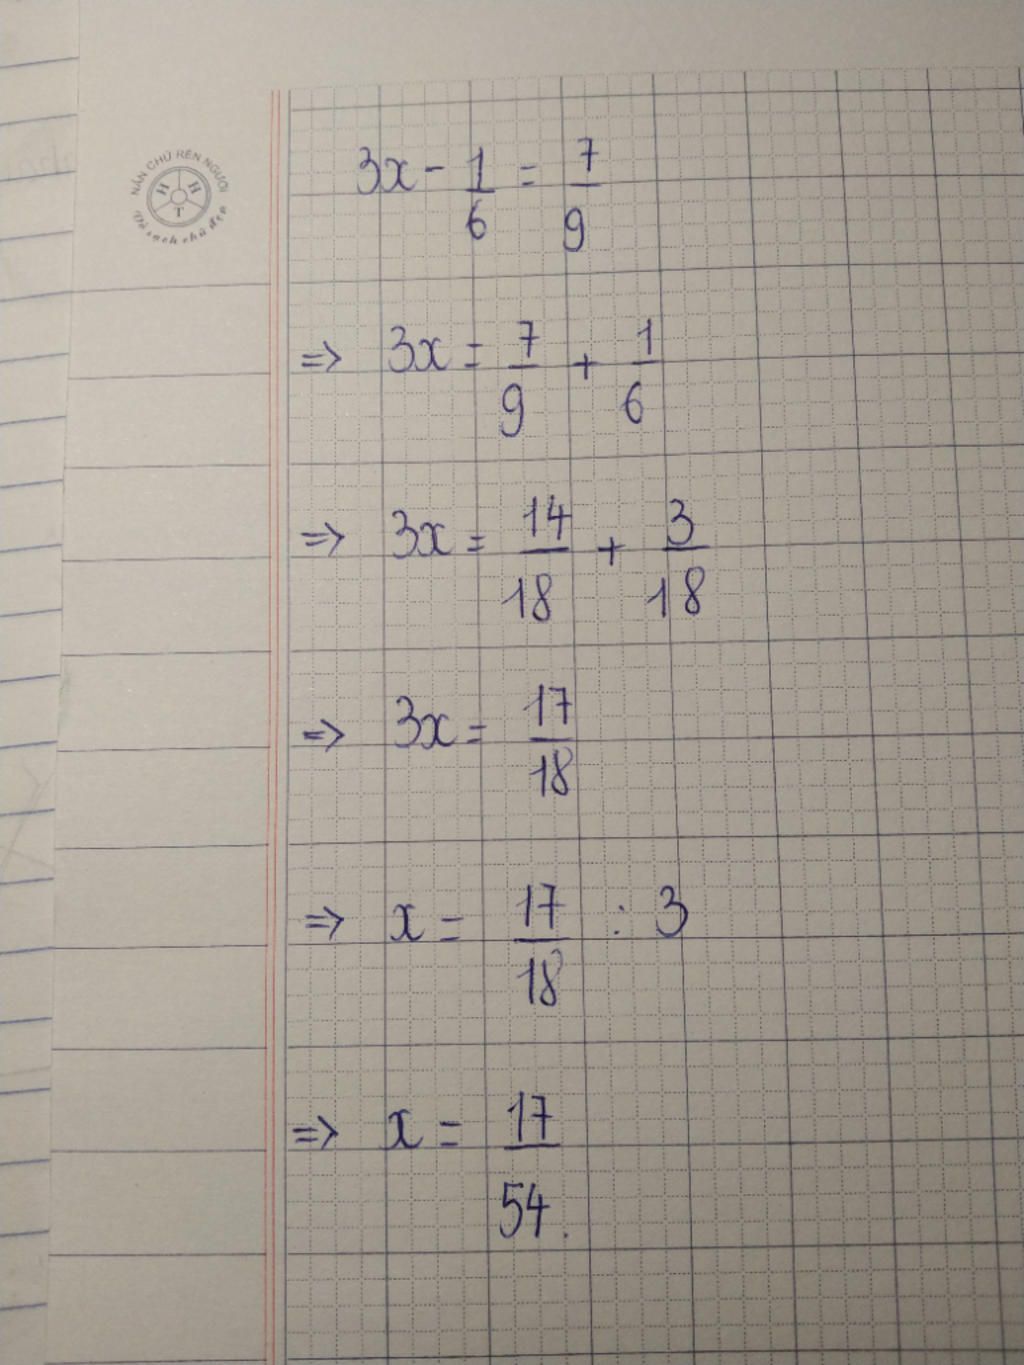 NẮN CHỮ RÈN NGƯỜI
H H
T
Vở sạch chữ đẹp
3x - 1/6 = 7/9
=> 3x = 7/9 + 1/6
=> 3x = 14/18 + 3/18
=> 3x = 17/18
=> x = 17/18 : 3
=> x = 17/54.